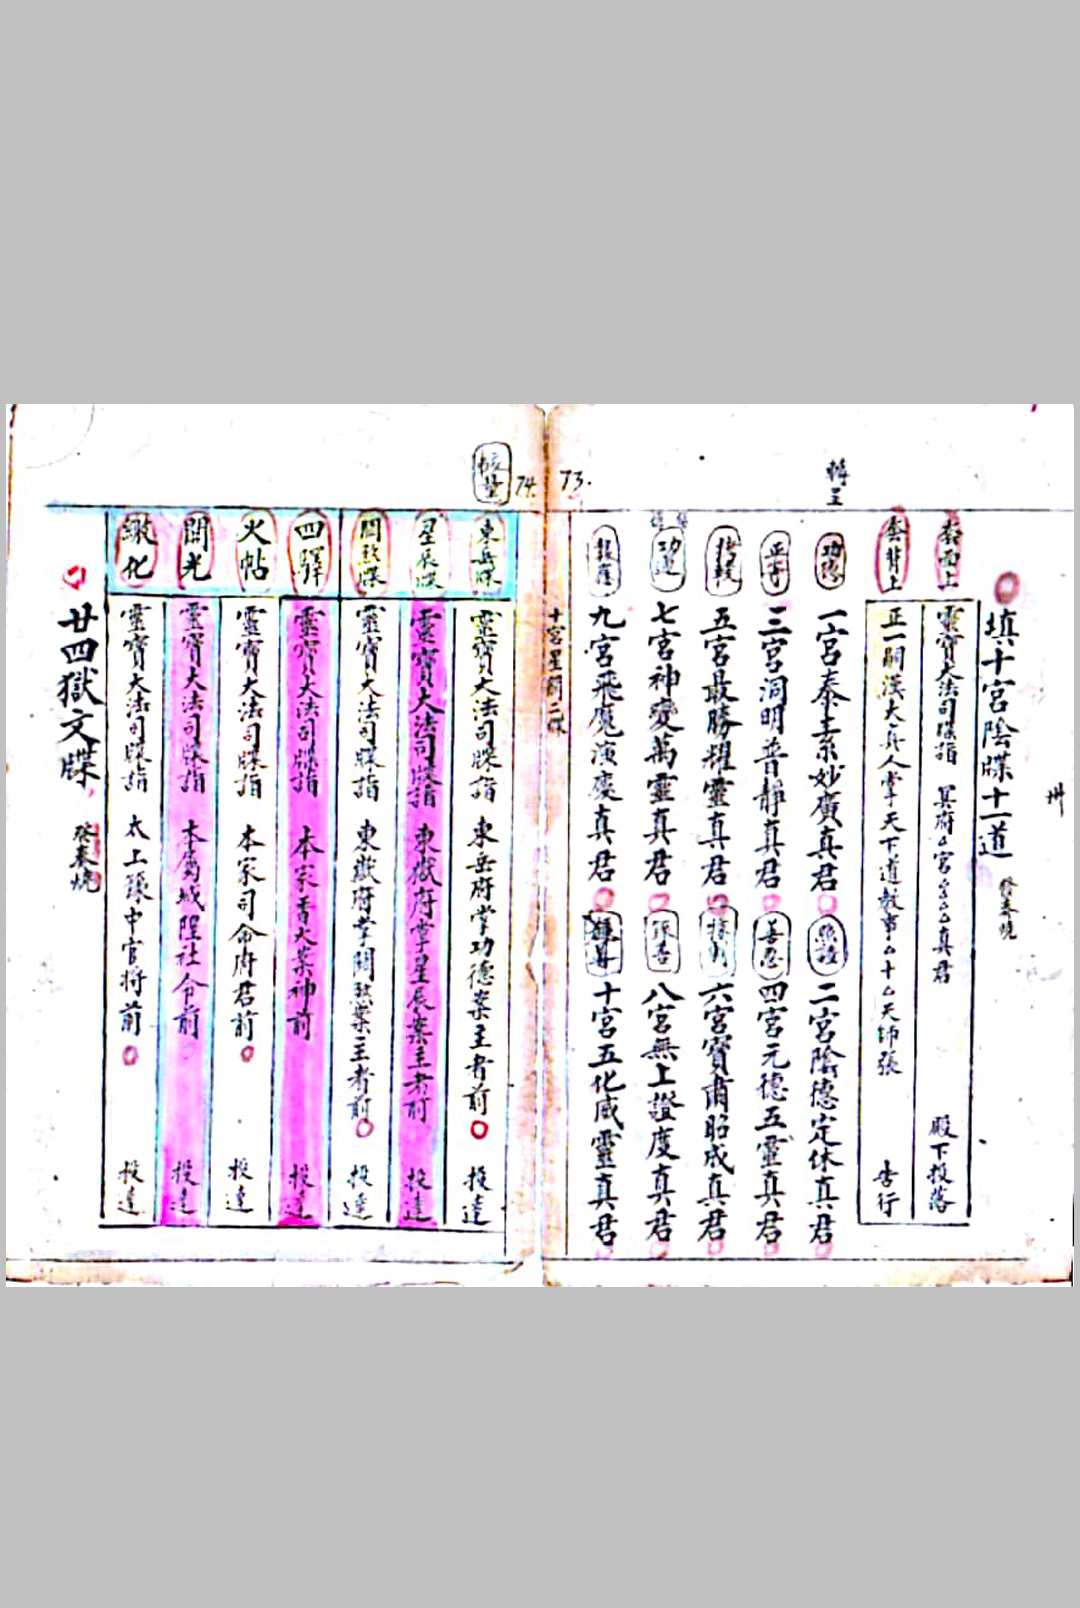 73.
填十宮陰牒十一道
靈寶大法司牒詣 冥府 宮 真君 殿下投落
套背上
正一嗣漢大真人掌天下道教事 十 天師張 告行
功德
一宮泰素妙廣真君
二宮陰德定休真君
三宮洞明普靜真君
善惡
四宮元德五靈真君
五宮最勝耀靈真君
六宮寶肅昭成真君
功過
七宮神變萬靈真君
八宮無上證度真君
九宮飛魔演慶真君
十宮五化威靈真君
74.
東岳牒
靈寶大法司牒詣 東岳府掌功德案主者前 投達
星辰牒
靈寶大法司牒詣 東嶽府掌星辰案主者前 投達
關煞牒
靈寶大法司牒詣 東嶽府掌關煞案主者前 投達
四驛
靈寶大法司牒詣 本家香火案神前 投達
火帖
靈寶大法司牒詣 本家司命府君前 投達
開光
靈寶大法司牒詣 本屬城隍社令前 投達
化
靈寶大法司牒詣 太上 中官將前 投達
廿四獄文牒